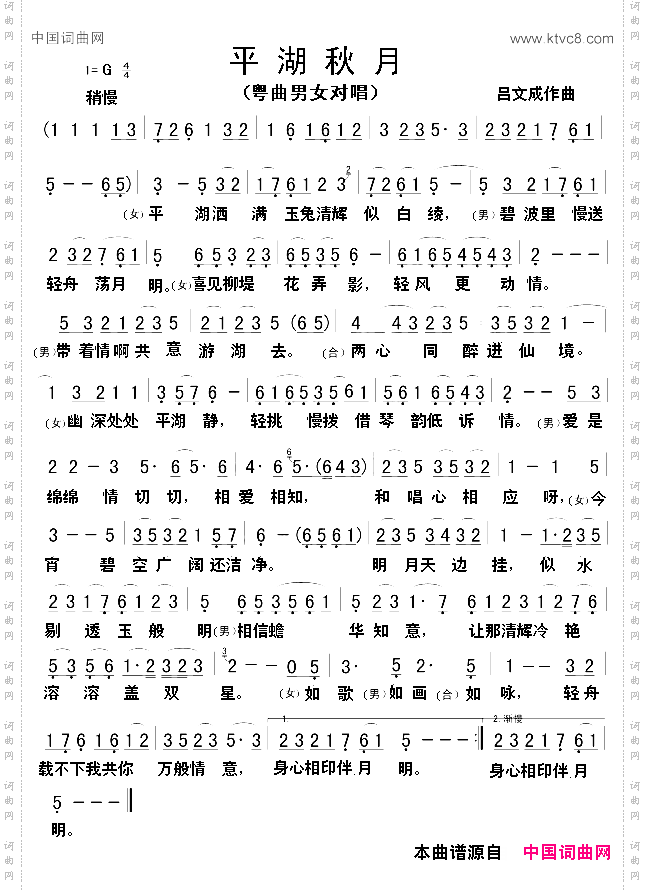 中国词曲网
www.ktvc8.com
平湖秋月
1=G 4/4
稍慢
（粤曲男女对唱）
吕文成作曲
(1 1 1 13 | 7261 32 | 16 1612 | 3 235· 3 | 2321761
5 - - 65) | 3 - 532 | 176123 | 72615 - | 53 21761
（女）平 湖洒 满 玉兔清辉 似 白 绫，（男）碧波里 慢送
232761 | 5 65323 | 65356 - | 61654543 | 2 - - -
轻舟 荡月 明。（女）喜见柳堤 花 弄 影， 轻风 更 动 情。
5321235 | 212355 (65) | 4 43235 | 353212 | 1 - - -
（男）带着情啊共 意 游 湖 去。（合）两心 同 醉迸 仙 境。
13 211 | 3576 - | 61653561 | 56165543 | 2 - - 53
（女）幽 深处处 平湖 静， 轻挑 慢拨 借 琴 韵低 诉 情。（男）爱 是
22 - 3 | 5· 65· 6 | 4· 65·(643) | 2353532 | 1 - 1 5
绵绵 情 切切， 相爱 相知， 和 唱心 相 应 呀，（女）今
3 - - 5 | 3532157 | 6 - (6561) | 2353432 | 1 - 1·235
宵 碧 空 广 阔还洁 净。 明 月天 边 挂， 似 水
23176123 | 5 6535356 | 5 231· 7 | 61231276
剔 透 玉 般 明（男）相信蟾 华 知 意， 让那清辉冷 艳
5356 1·2323 | 2 - - 05 | 3· 52· 5 | 1 - 32
溶 溶 盖 双 星。（女）如 歌（男）如 画（合）如 咏， 轻舟
1761612 | 35235· 3 | 1. 2321761 | 5 - - - :| 2.渐慢 2321761
载不下我共你 万般情 意， 身心相印伴月 明。 身心相印伴月
5 - - - ‖
明。
本曲谱源自 中国词曲网